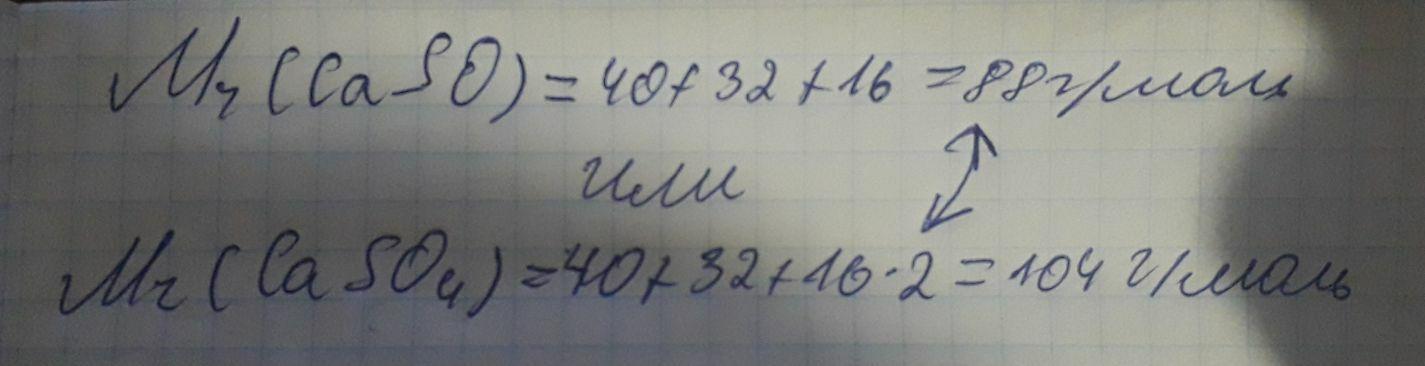 Mr (CaSO) = 40 + 32 + 16 = 88 г/моль
или
Mr (CaSO₄) = 40 + 32 + 16 · 2 = 104 г/моль